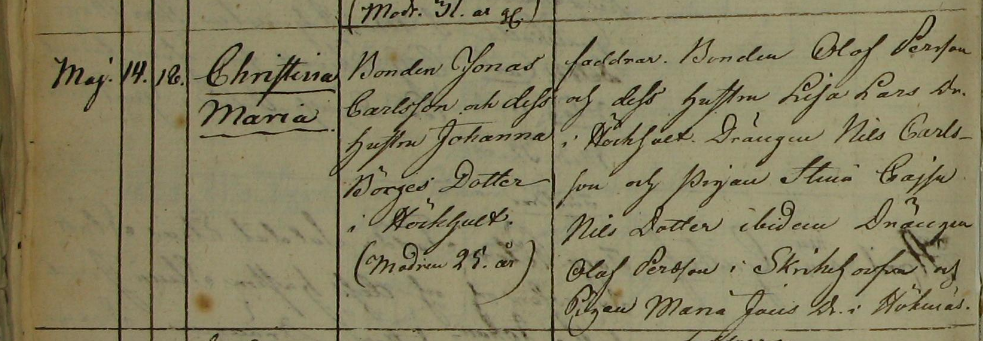 (Modr. 31. år gl.)
Maj. 14. 18. Christina
Maria
Bonden Jonas
Carlsson och dess
hustru Johanna
Börges Dotter
i Hökhult.
(Modren 25. år)
faddrar. Bonden Olof Persson
och dess hustru Lisa Lars Dr.
i Hökhult. Drängen Nils Carls-
son och Pigan Stina Cajsa
Nils Dotter ibidem Drängen
Olof Persson i och
Pigan Maria Jons Dr. i Höknäs.